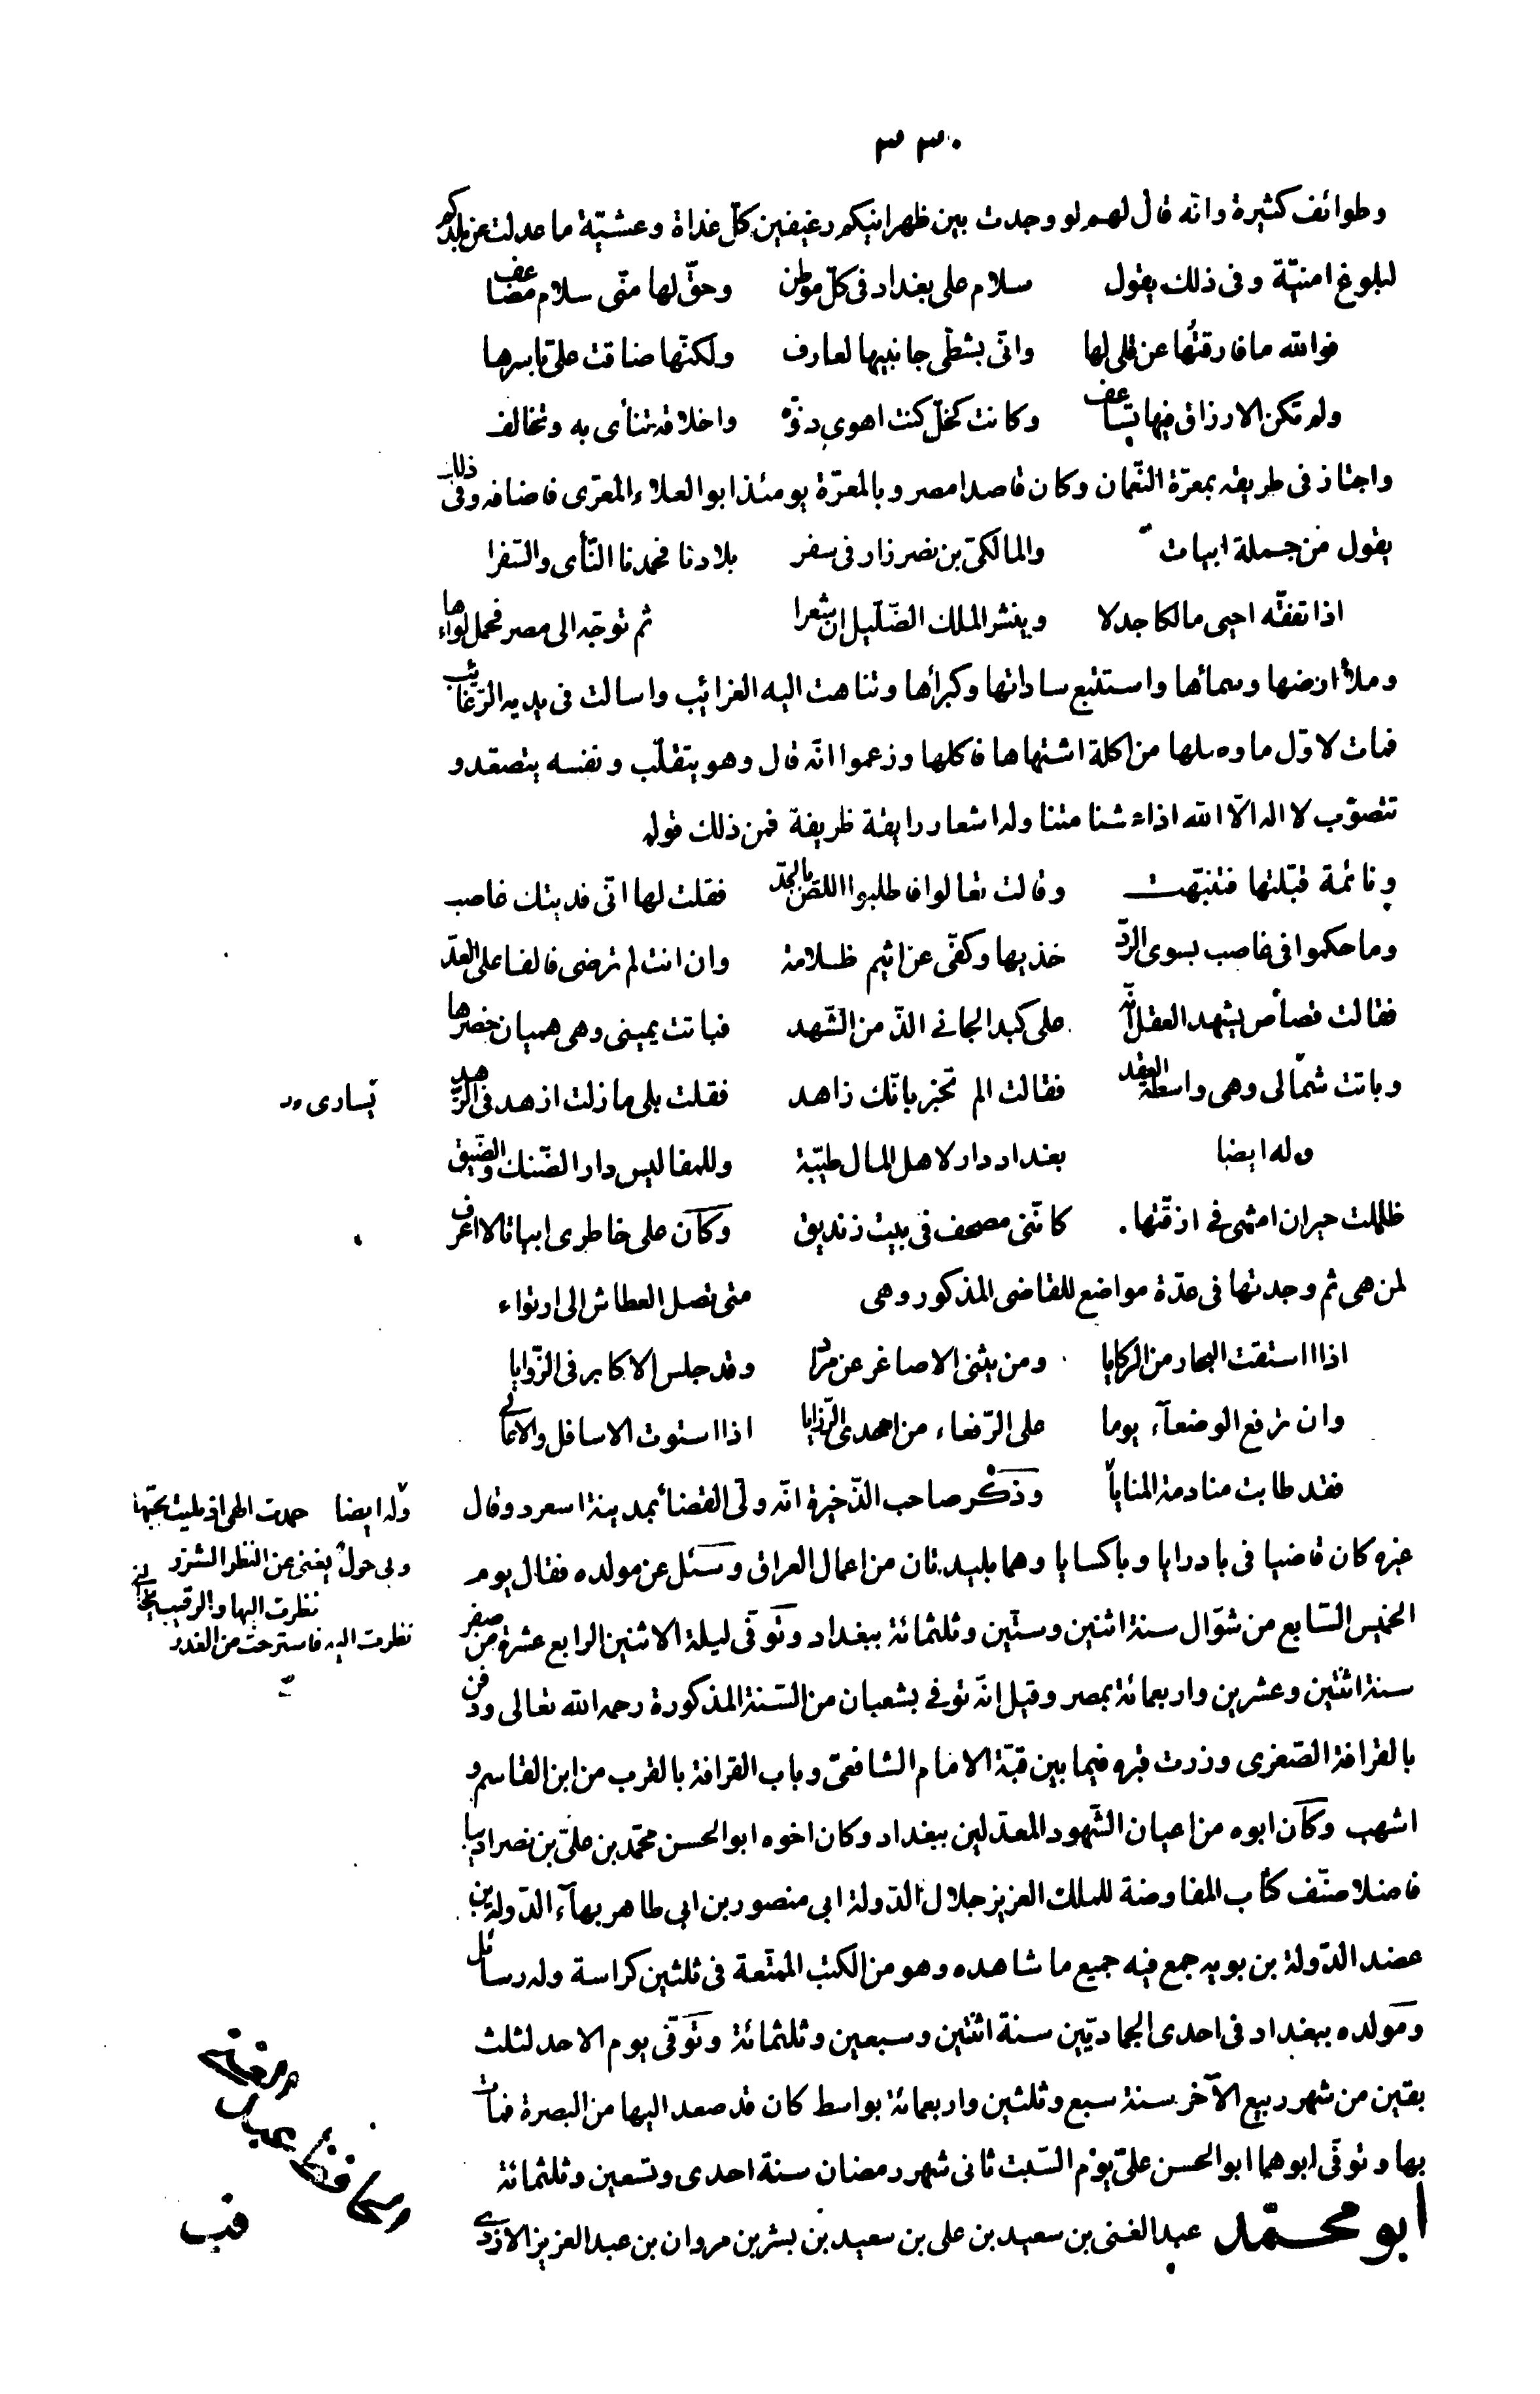 ٣٣٠
وطوائف كثيرة وانه قال لهم لو وجدت بين ظهرانيكم رغيفين كلّ غداة وعشيّة ما عدلت عن بلدكم
لبلوغ امنيّة وفى ذلك يقول سلام على بغداد فى كلّ موطن وحقّ لها منّى سلام مضاعف
فوالله ما فارقتُها عن قلى لها وانّى بشطّى جانبيها لعارف ولكنّها ضاقت علىّ باسرها
ولم تكن الارزاق فيها تساعف وكانت كخلّ كنت اهوى دنوّه واخلاقه تنأى به وتخالف
واجتاز فى طريقه بمعرّة النّعمان وكان قاصدا مصر وبالمعرّة يومئذ ابو العلاء المعرّى فاضافه وفى ذلك
يقول من جملة ابيات والمالكىّ بن نصر زار فى سفر بلادنا فحمدنا النّأى والسّفرا
اذا تفقّه احيى مالكا جدلا وينشر الملك الضّلّيل ان شعرا ثم توجّه الى مصر فحمل لواءها
وملأ ارضها وسمائها واستتبع ساداتها وكبرأها وتناهت اليه الغرائب واسالت فى يديه الرّغائب
فمات لاوّل ما وصلها من اكلة اشتهاها فاكلها وزعموا انّه قال وهو يتقلّب ونفسه يتصعّد و
تتصوّب لا اله الّا الله اذا عشنا متنا وله اشعار رايقة ظريفة فمن ذلك قوله
ونائمة قبّلتها فتنبّهت وقالت تعالوا فاطلبوا اللصّ بالحدّ فقلت لها انّى فديتك غاصب
وما حكموا فى غاصب بسوى الردّ خذيها وكفّى عن اثيم ظلامة وان انت لم ترضى فالفا على العدّ
فقالت قصاص يشهد العقل انّه على كبد الجانى الذّ من الشّهد فباتت يمينى وهى هميان خصرها
وباتت شمالى وهى واسطة العقد فقالت الم تخبر بانّك زاهد فقلت بلى ما زلت ازهد فى الزّهد
يسارى
وله ايضا بغداد دار لاهل المال طيّبة وللمفاليس دار الضّنك والضّيق
ظللت حيران امشى فى ازقّتها كانّنى مصحف فى بيت زنديق وكان على خاطرى ابيات لا اعرف
لمن هى ثم وجدتها فى عدّة مواضع للقاضى المذكور وهى متى تصل العطاش الى ارتواء
اذا استقت البحار من الركايا ومن يثنى الاصاغر عن مراد وقد جلس الاكابر فى الزّوايا
وان ترفع الوضعآء يوما على الرّفعاء من احدى الرّزايا اذا استوت الاسافل والاعالى
فقد طابت منادمة المنايا وذكر صاحب الذّخيرة انّه ولّى القضاء بمدينة اسعرد وقال
وله ايضا حمدت الهى اذ بليت بحبّها
غيره كان قاضيا فى بادرايا وباكسايا وهما بليدتان من اعمال العراق وسئل عن مولده فقال يوم
وبى حول يغنى عن النظر الشزر
نظرت اليها والرقيب يخالنى
الخميس السّابع من شوّال سنة اثنين وستّين وثلثمائة ببغداد وتوفّى ليلة الاثنين الرابع عشرة من صفر
نظرت اليه فاسترحت من العذر
سنة اثنتين وعشرين واربعمائة بمصر وقيل انّه توفى بشعبان من السّنة المذكورة رحمه الله تعالى ودفن
بالقرافة الصّغرى وزرت قبره فيما بين قبّة الامام الشافعىّ وباب القرافة بالقرب من ابن القاسم و
اشهب وكان ابوه من اعيان الشّهود المعدّلين ببغداد وكان اخوه ابو الحسن محمّد بن علىّ بن نصر اديبا
فاضلا صنّف كتاب المفاوضة للملك العزيز جلال الدّولة ابى منصور بن ابى طاهر بهآء الدّولة بن
عضد الدّولة بن بويه جمع فيه جميع ما شاهده وهو من الكتب الممتعة فى ثلثين كراسة وله رسائل
ومولده ببغداد فى احدى الجماديّين سنة اثنتين وسبعين وثلثمائة وتوفّى يوم الاحد لثلث
بقين من شهر ربيع الآخر سنة سبع وثلثين واربعمائة بواسط كان قد صعد اليها من البصرة فمات
بها وتوفّى ابوهما ابو الحسن علىّ يوم السّبت ثانى شهر رمضان سنة احدى وتسعين وثلثمائة
ابو محمّد عبد الغنى بن سعيد بن على بن سعيد بن بشر بن مروان بن عبد العزيز الازدى
الحافظ عبد